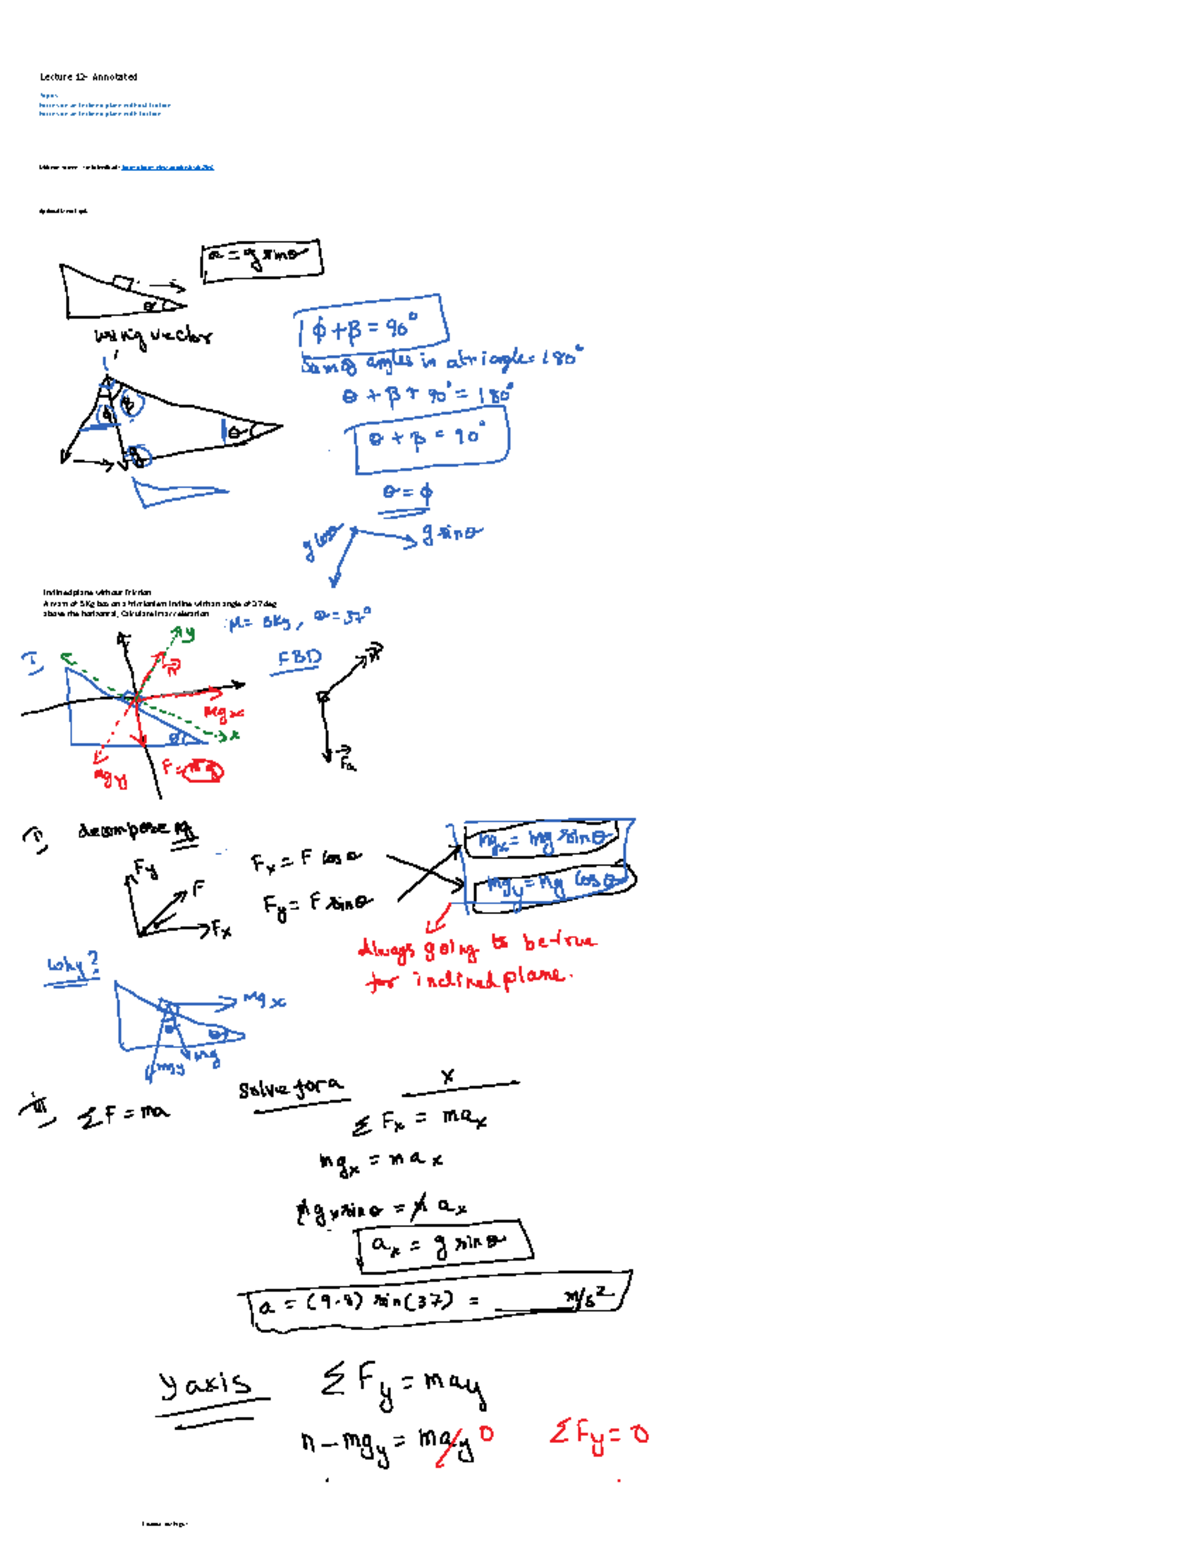 Lecture 12- Annotated
Topics
Forces on an inclined plane without friction
Forces on an inclined plane with friction
a = g sinθ
θ
using vector
ϕ + β = 90°
Sum of angles in a triangle = 180°
θ + β + 90° = 180°
θ + β = 90°
θ = ϕ
ϕ
β
θ
g cosθ
g sinθ
Inclined plane without friction
A mass of 5 Kg box on a frictionless incline with an angle of 37 deg
above the horizontal, Calculate its acceleration
M = 5Kg, θ = 37°
I)
y
n
Mgx
x
θ
mgy
F = mg
FBD
n
FG
decompose Mg
Fy
F
Fx
Fx = F cosθ
Fy = F sinθ
mgx = mg sinθ
mgy = mg cosθ
Always going to be true
for inclined plane.
Why?
Mgx
θ
θ
mgy
mg
iii)
ΣF = ma
Solve for a
x
ΣFx = max
mgx = max
Mg sinθ = M ax
ax = g sinθ
a = (9.8) sin(37) = ____ m/s²
y axis
ΣFy = may
n - mgy = may 0
ΣFy = 0